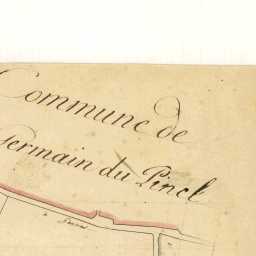 Commune de
Germain du Pinel